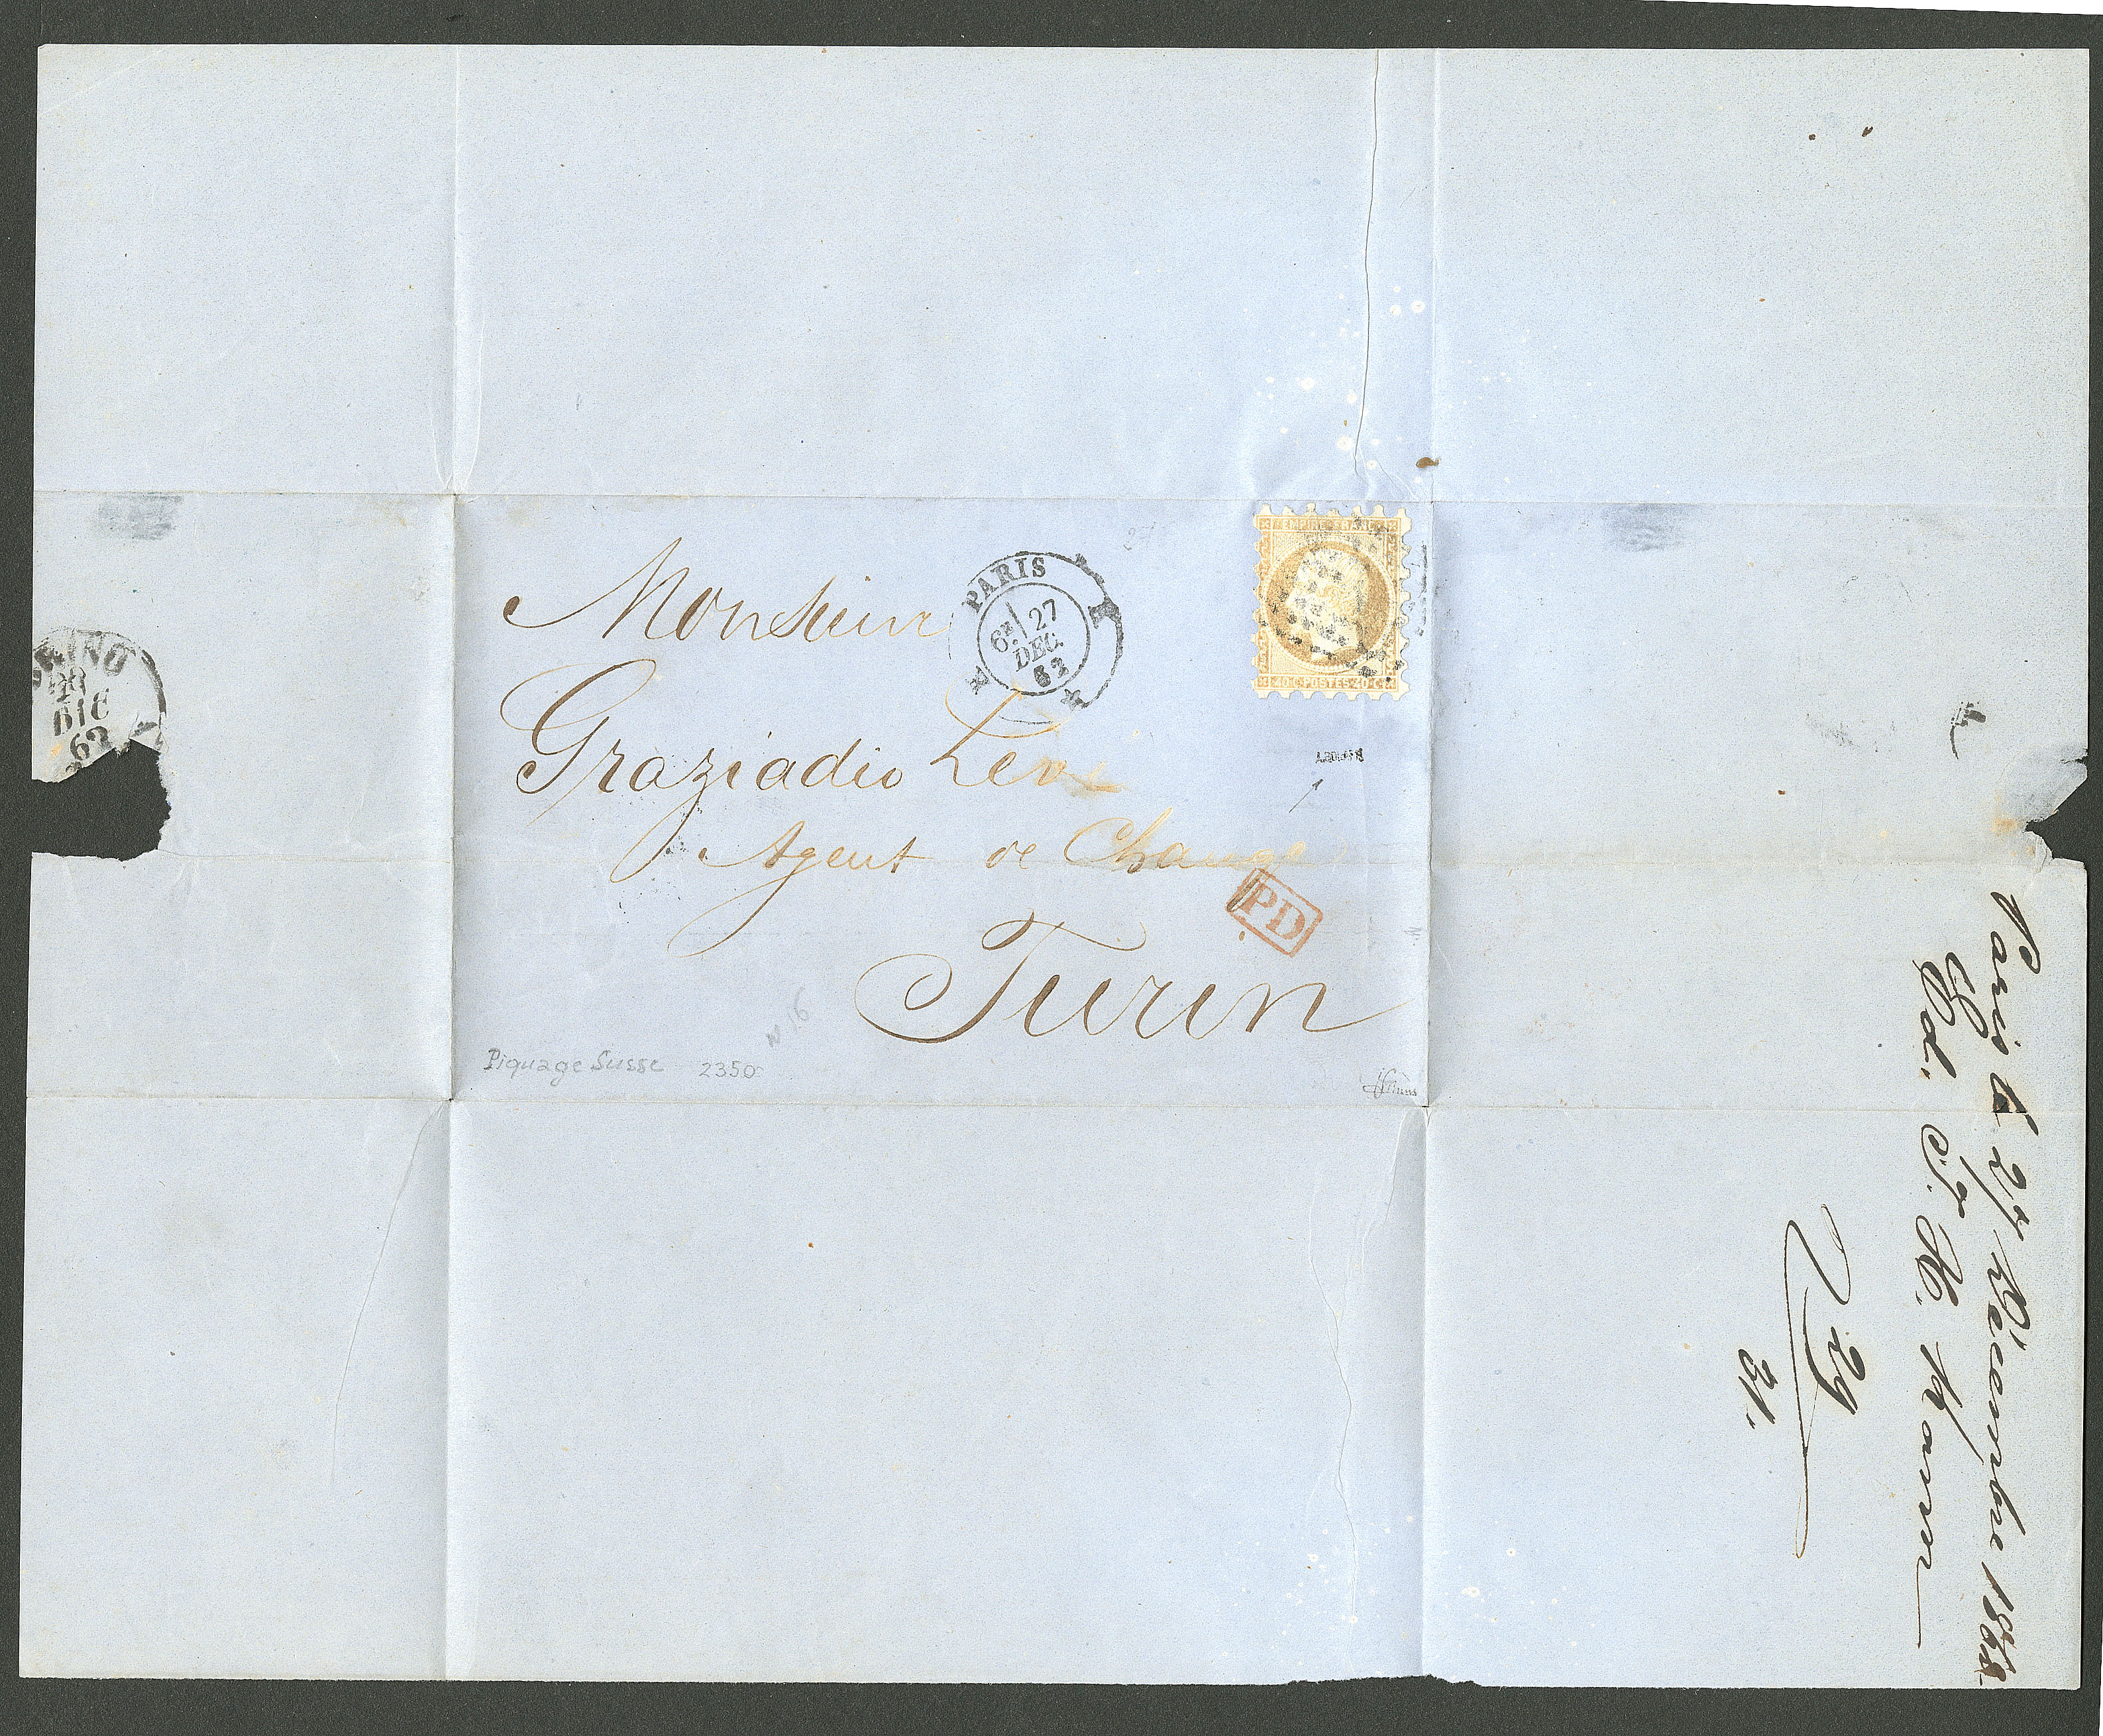 Monsieur
Graziadio Levi
Agent de Change
Turin
PARIS
6E 27
DEC.
62
EMPIRE FRANC
40 C POSTES 40 C
PD
27
Piquage Susse 2350
16
ORINO
28
DIC
62
Paris le 27 Décembre 1862
29
31.